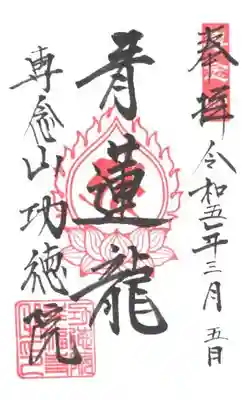 奉拝 令和五年三月五日
青蓮龍
専念山功徳院